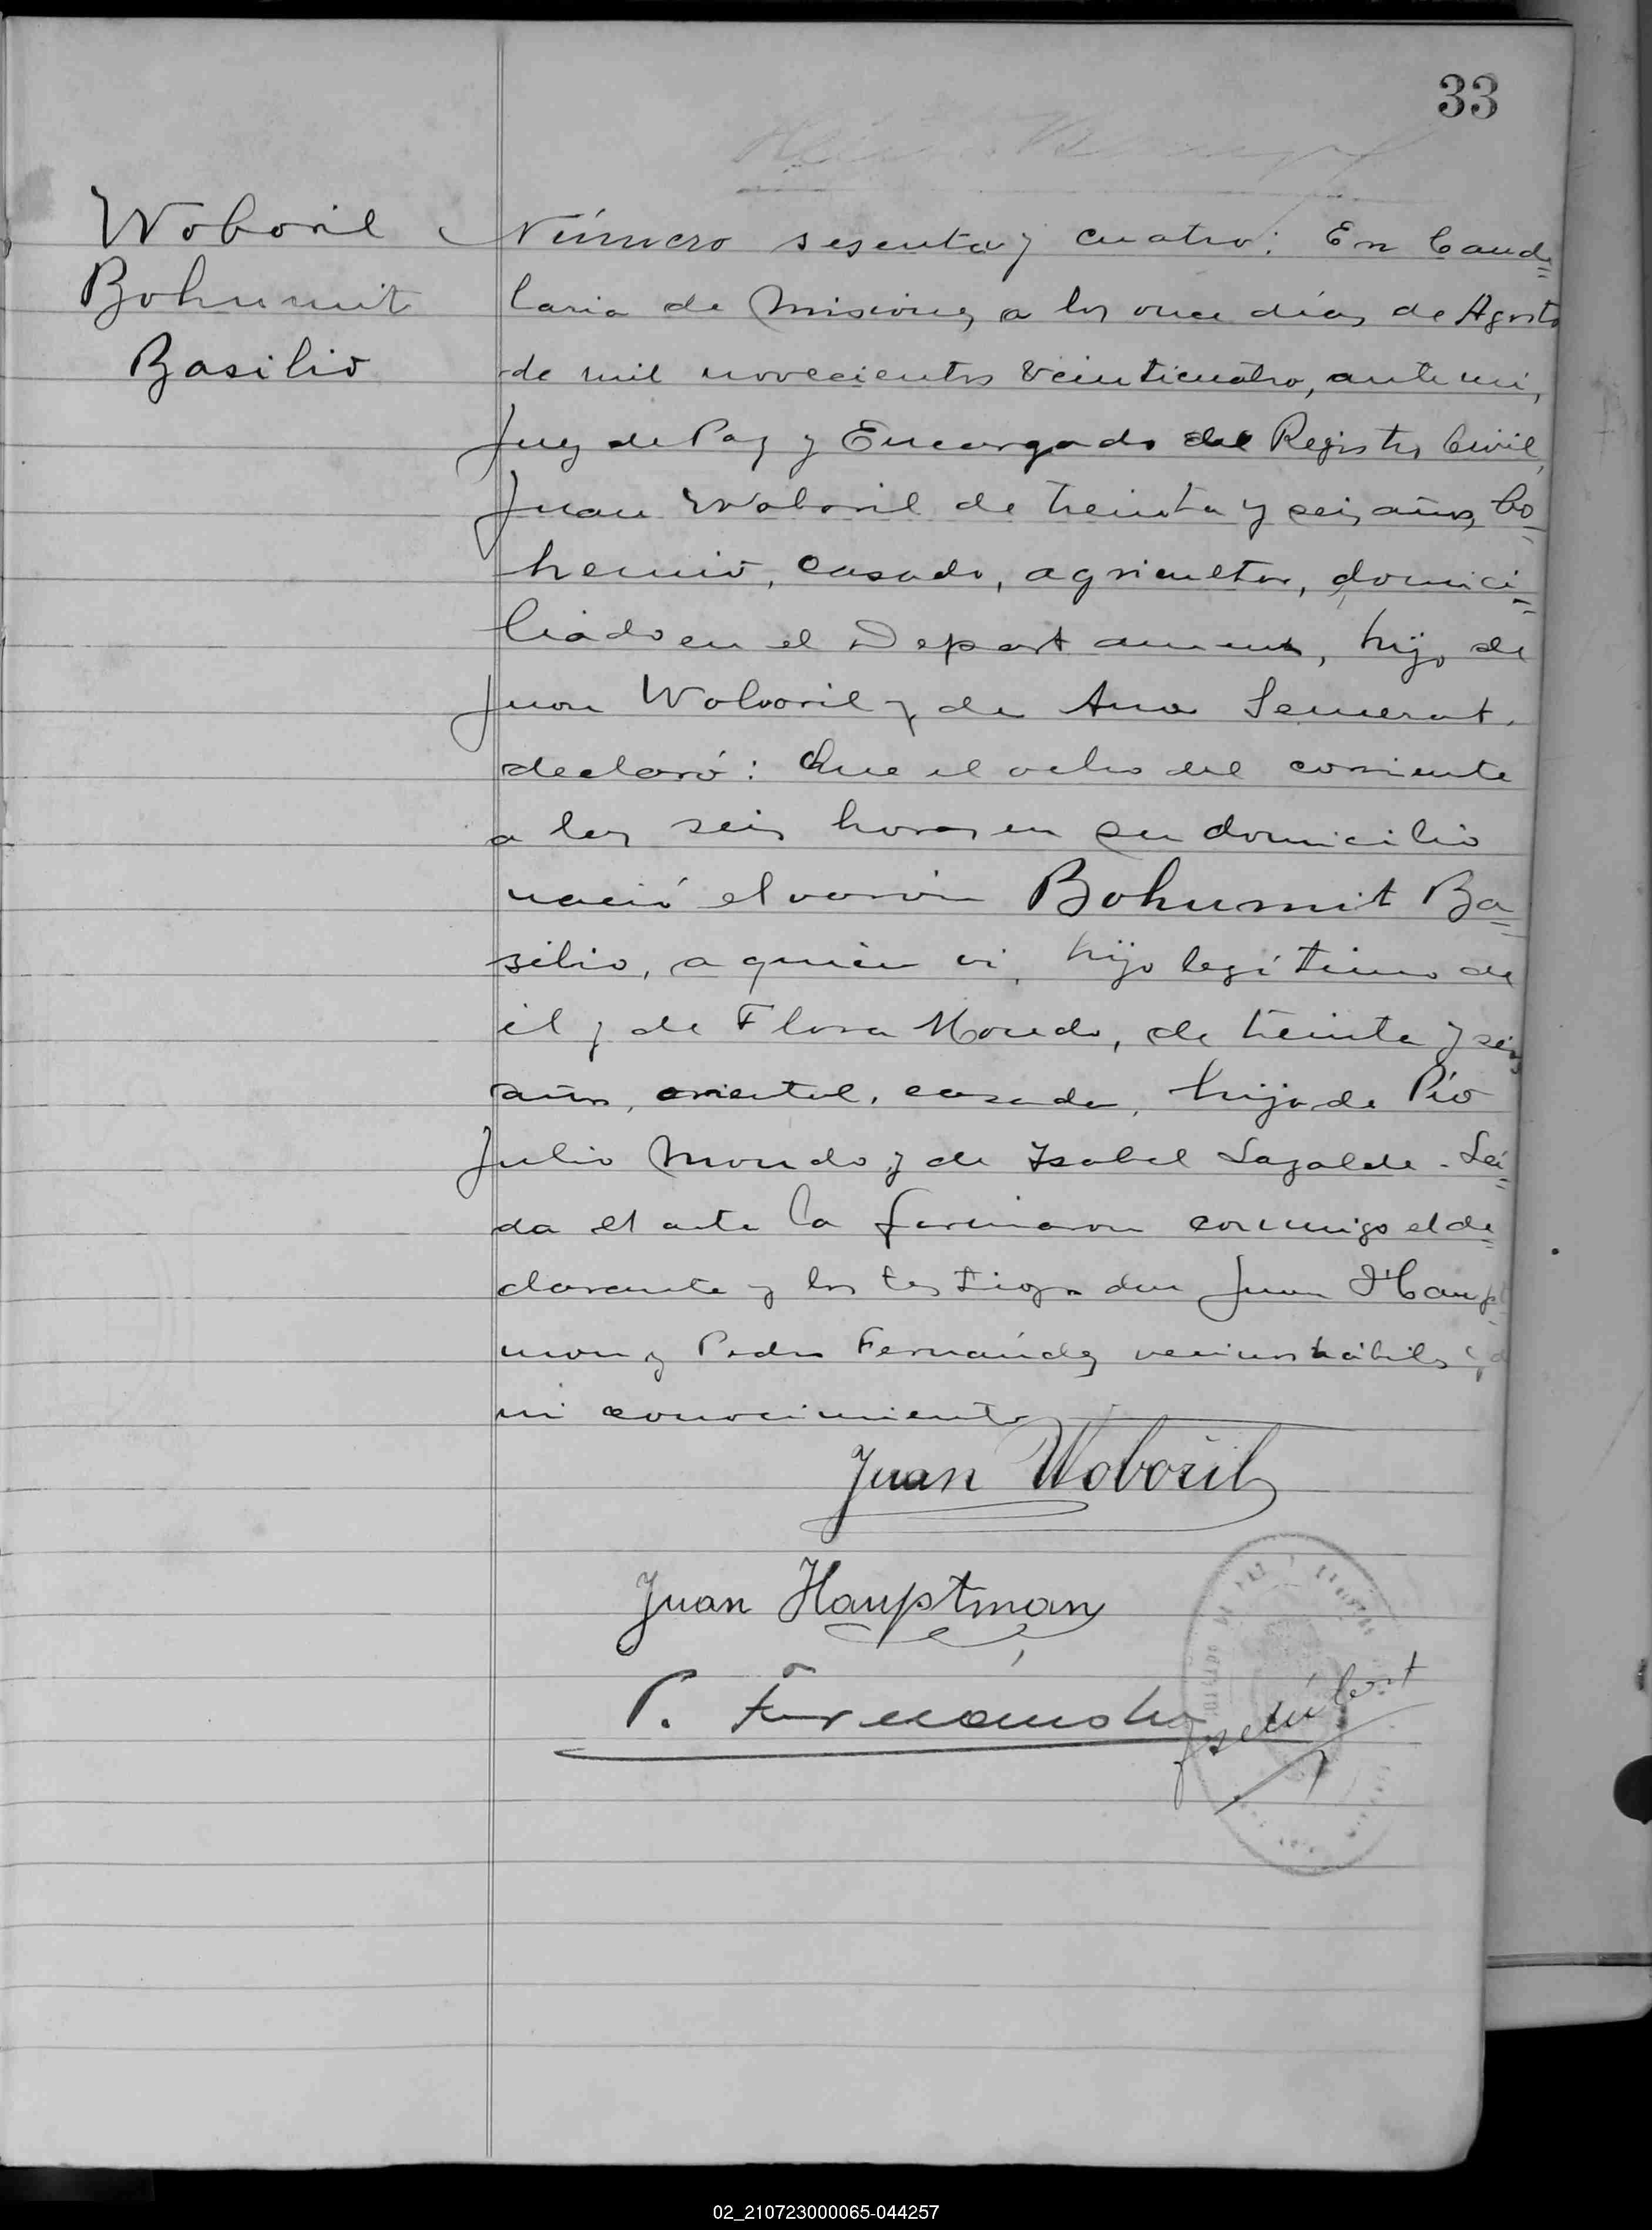 33
Woboril
Bohumit
Basilio
Número sesenta y cuatro: En Cande=
laria de Misiones a los once días de Agosto
de mil novecientos veinticuatro, ante mi,
Juez de Paz y Encargado del Registro Civil,
Juan Woboril de treinta y seis años, bo=
hemio, casado, agricultor, domici=
liado en el Departamento, hijo de
Juan Woboril y de Ana Semerat.
declaró: Que el ocho del corriente
a las seis horas en su domicilio
nació el varón Bohumit Ba=
silio, a quien vi, hijo legítimo de
él y de Flora Mondo, de treinta y seis
años, oriental, casada, hija de Pío
Julio Mondo y de Isabel Lagalde. Leí=
da el acta la firmaron conmigo el de=
clarante y los testigos don Juan Haupt
man y Pedro Fernández vecinos hábiles y de
mi conocimiento
Juan Woboril
Juan Hauptman
P. Fernández
02_210723000065-044257